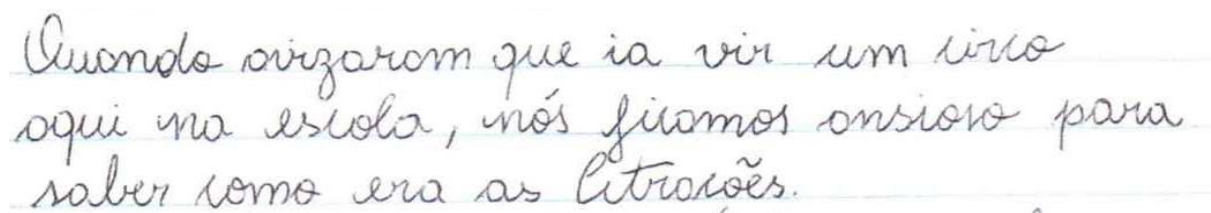 Quando avizaram que ia vir um circo
aqui na escola, nós ficamos ansioso para
saber como era as Citracões.